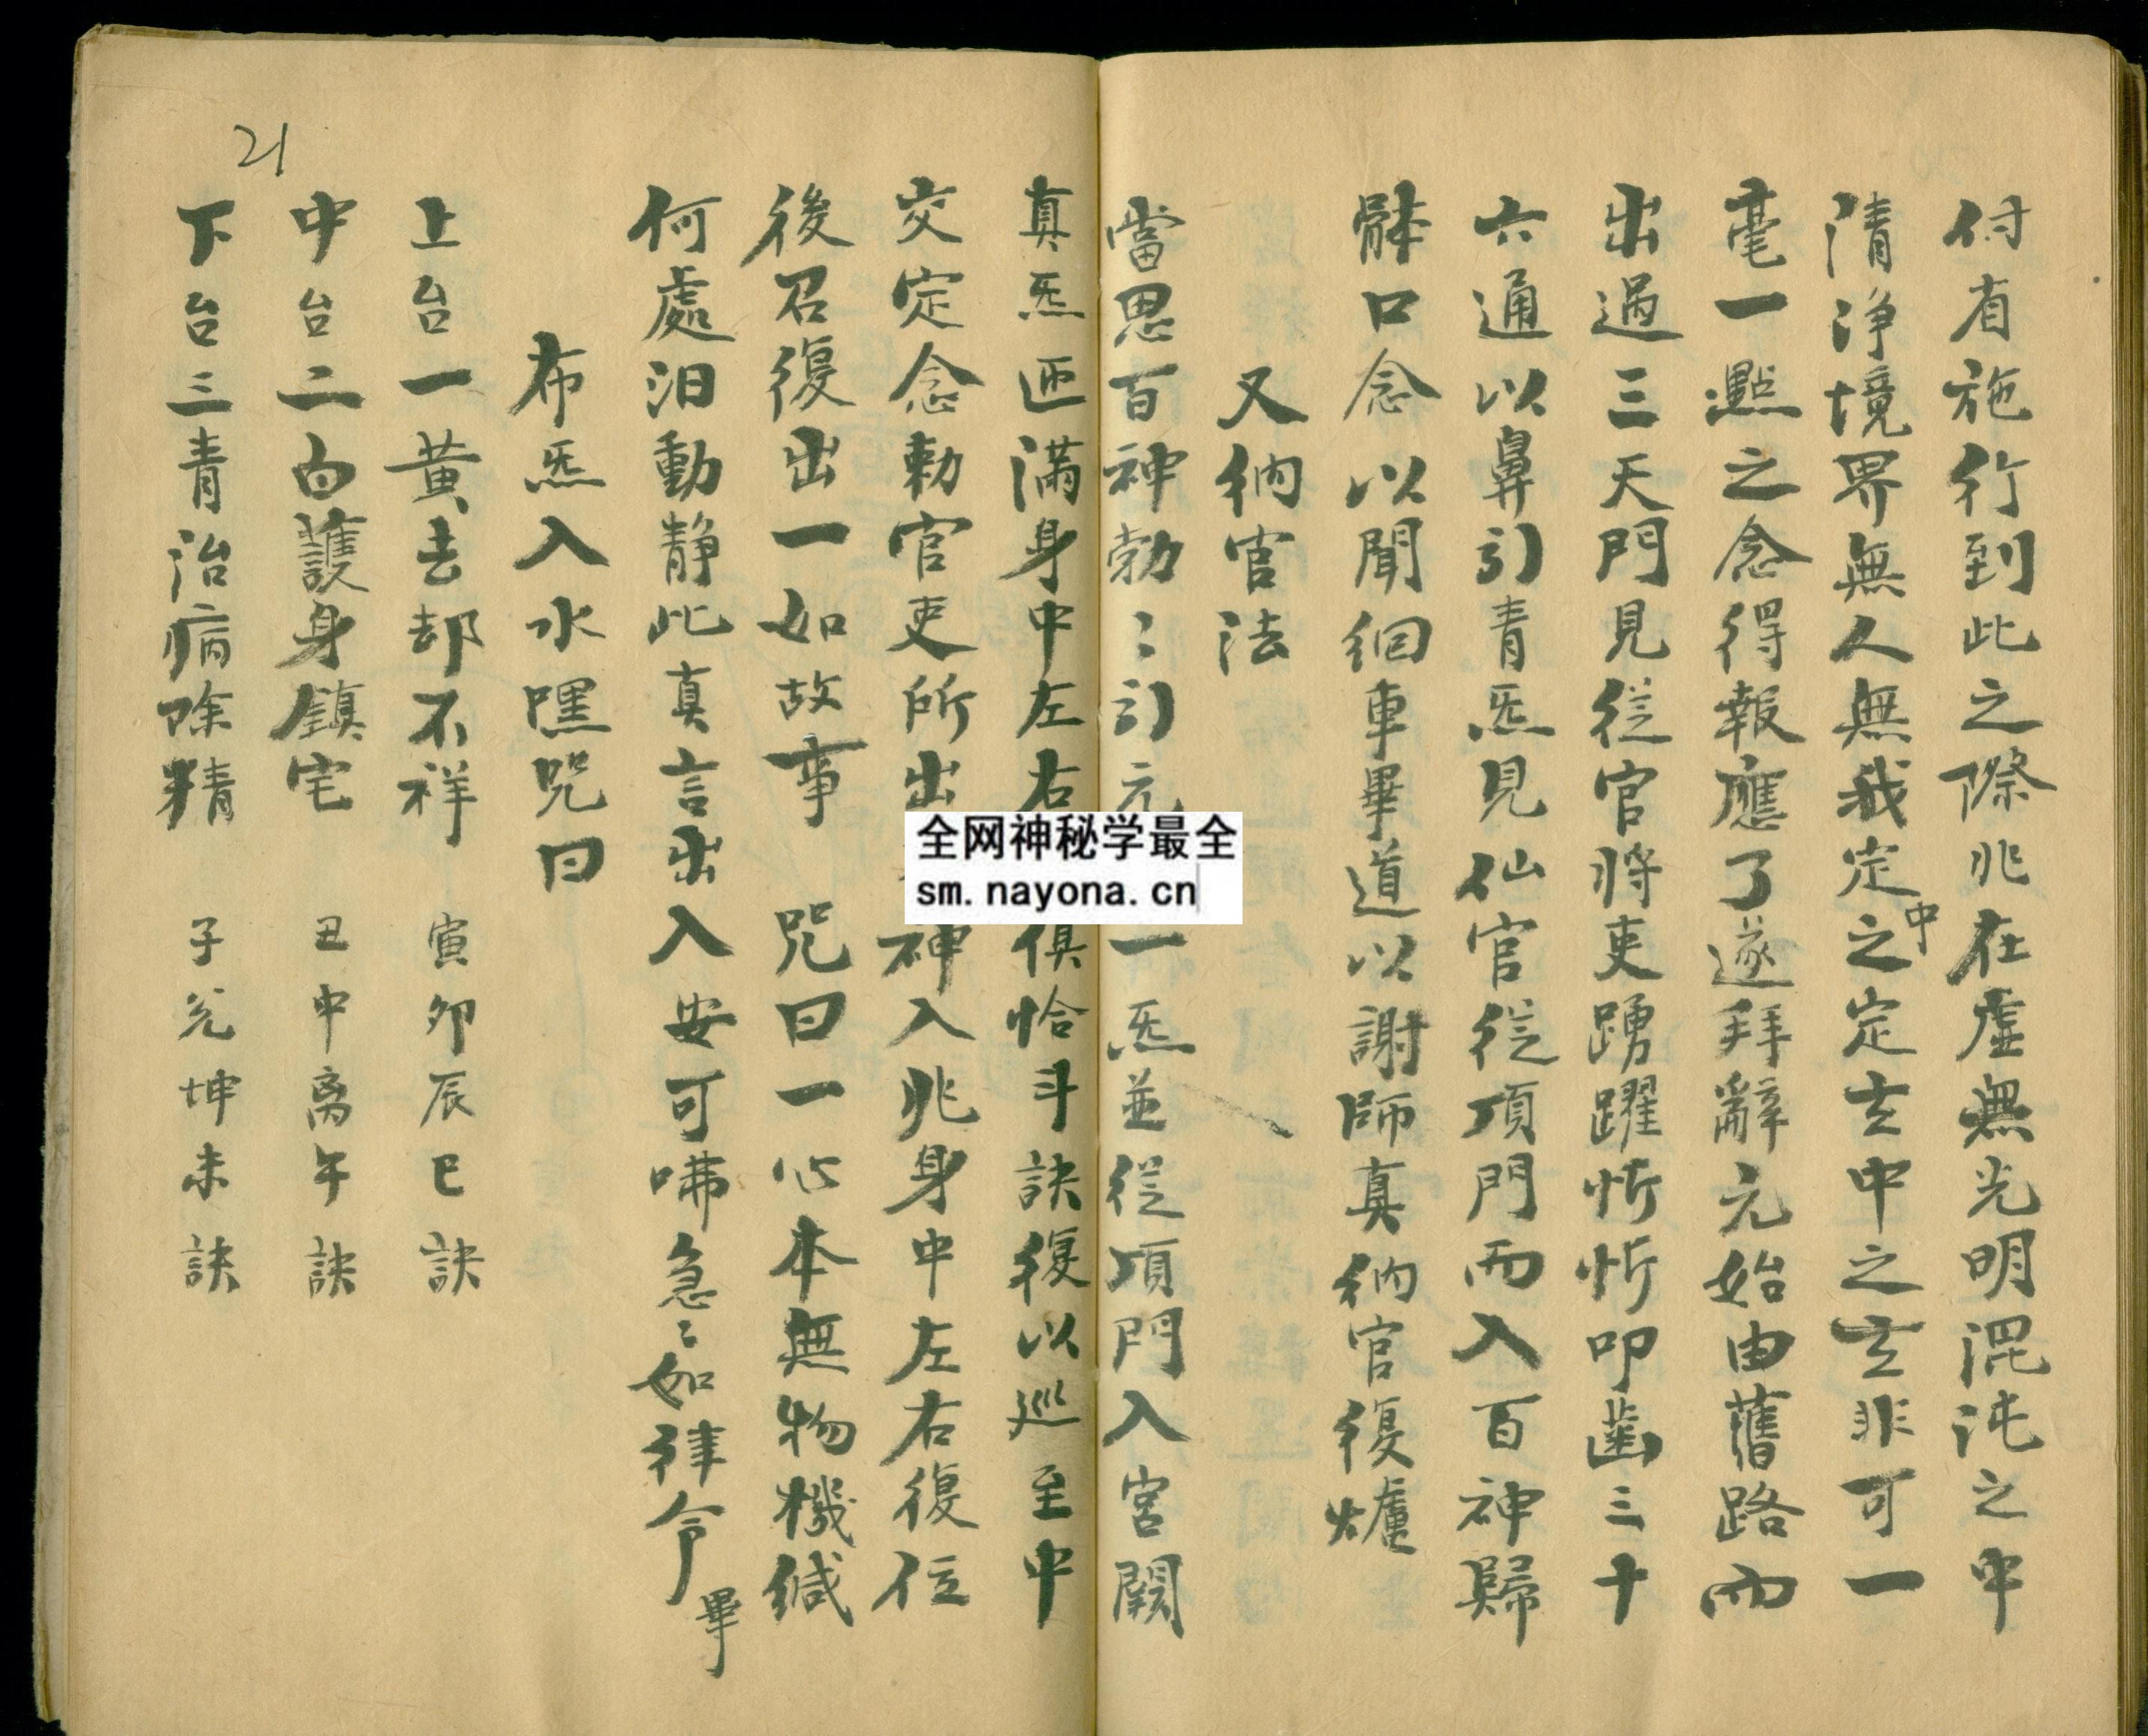 付有施行到此之際兆在虛無光明混沌之中
清净境界無人無我定中之定玄中之玄非可一
毫一點之念得報應了遂拜辭元始由舊路而
出過三天門見從官將吏踴躍忻忻叩齒三十
六通以鼻引青炁見仙官從頂門而入百神歸
躰口念以聞徊車畢道以謝師真納官復爐
又納官法
當思百神勃〻引元一炁並從頂門入宮闕
真炁迊滿身中左右俱恰斗訣復以巡至中
交定念勅官吏所出神入兆身中左右復位
後召復出一如故事 咒曰一心本無物機緘
何處汨動静此真言出入安可咈急〻如律令畢
布炁入水嘿咒曰
上台一黃去却不祥 寅卯辰巳訣
中台二白護身鎮宅 丑中离午訣
下台三青治病除精 子兊坤未訣
21
全网神秘学最全
sm.nayona.cn